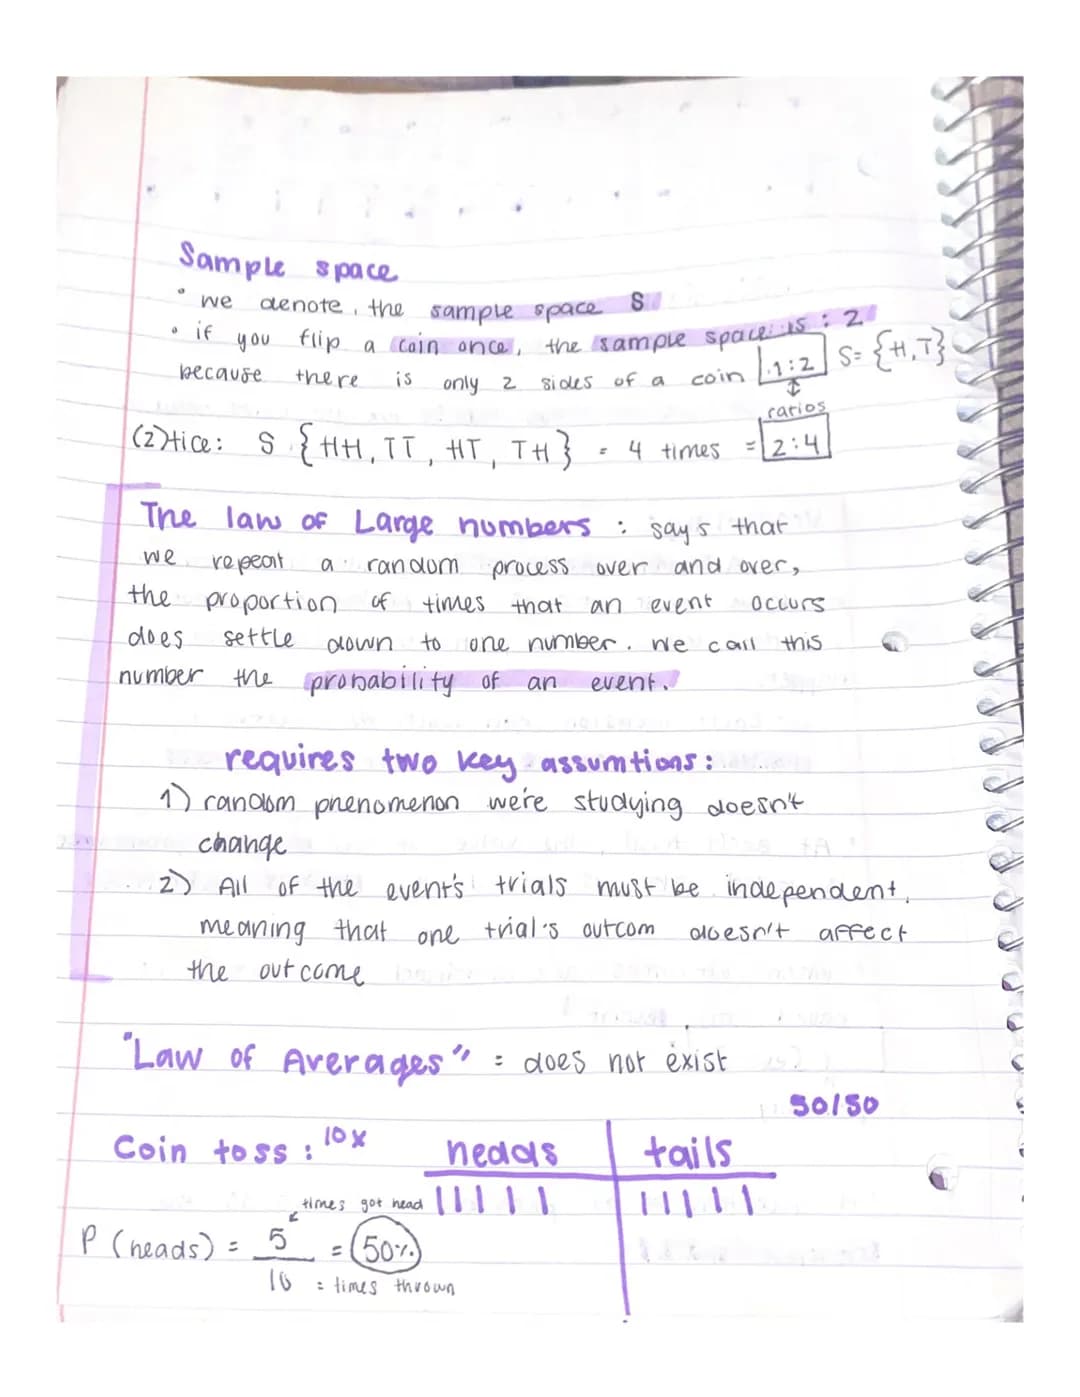 Sample space
• we denote, the sample space S
• if you flip a coin once, the sample space: is : 2
because there is only 2 sides of a coin 1:2 S= {H,T}
ratios
(2)tice: S {HH, TT, HT, TH} = 4 times = 2:4
The law of Large numbers : say's that
we repeat a random process over and over,
the proportion of times that an event occurs
does settle down to one number. We call this
number the probability of an event.
requires two key assumtions:
1) random phenomenon we're studying doesn't
change
2) All of the event's trials must be independent,
meaning that one trial's outcom doesn't affect
the outcome
"Law of Averages" = does not exist
50/50
Coin toss: 10x heads tails
times got head IIIII IIIII
P (heads) = 5/10 = 50%
= times thrown